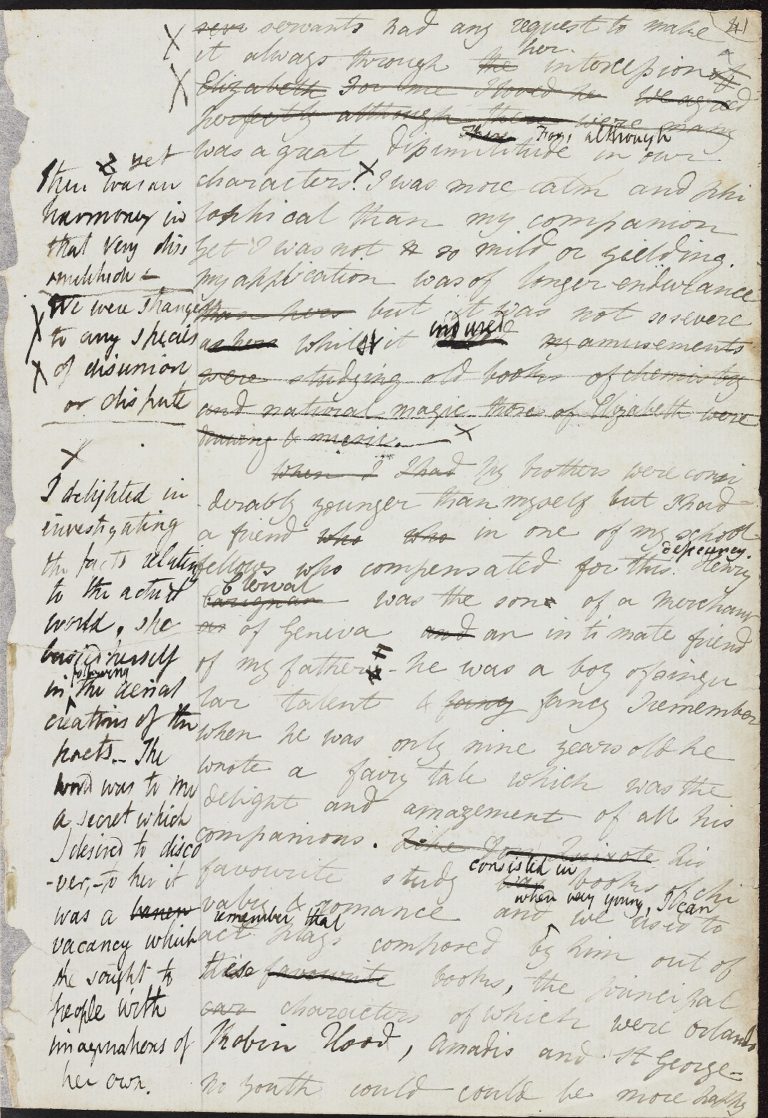 41
servants had any request to make
it always through the her intercession
Elizabeth For me I loved he We agreed
perfectly although there were many
There They, although
was a great dissimilitude in our
characters. X I was more calm and phi
losophical than my companion
yet I was not so mild or yielding.
my application was of longer endurance
than hers but it was not so severe
as hers whilst it endured my amusements
were studying old books of chemistry
and natural magic those of Elizabeth were
drawing & music. X
When I I had My brothers were consi
derably younger than myself but I had
a friend who who in one of my school
deficiency.
fellows who compensated for this Henry
Clerval
was the son of a merchant
of Geneva and an intimate friend
of my father - he was a boy of singu
lar talent & fancy fancy I remember
when he was only nine years old he
wrote a fairy tale which was the
delight and amazement of all his
companions. Like Don Quixote his
consisted in
favourite study books of chi
when very young, I can
valry & romance and we used to
remember that
act plays composed by him out of
these favourite books, the principal
our characters of which were Orlando
Robin Hood, Amadis and St George-
No youth could could be more happy
X
X
& yet
there was an
harmoney in
that very diss
imilitude
We were strange
X to any species
X of disunion
or dispute
X
I delighted in
investigating
the facts relating
to the actual
world, she
busied herself
following
in the aerial
creations of the
poets - The
world was to me
a secret which
I desired to disco
-ver, - to her it
was a
vacancy which
she sought to
people with
imaginations of
her own.